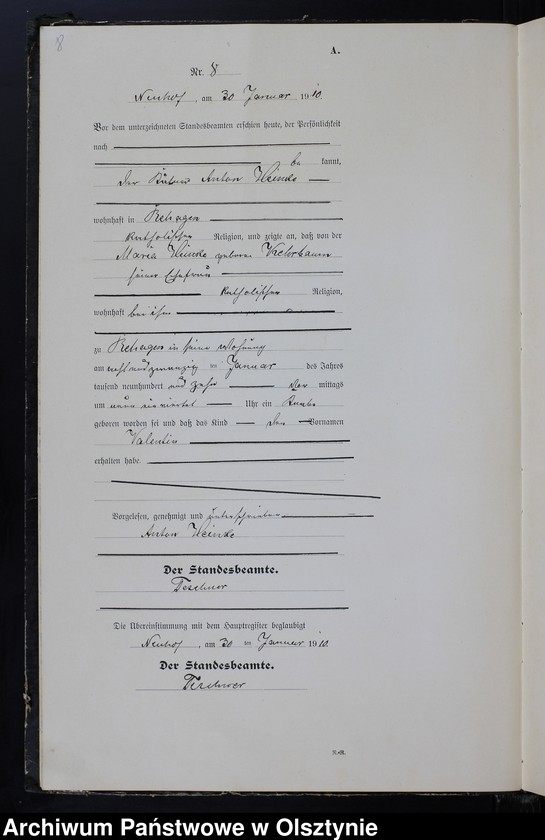 8
A.
Nr. 8
Neuhof, am 30 Januar 1910.
Vor dem unterzeichneten Standesbeamten erschien heute, der Persönlichkeit
nach
be kannt,
der Anton
wohnhaft in Rehagen
katholischer Religion, und zeigte an, daß von der
Maria geborene
seiner Ehefrau
katholischer Religion,
wohnhaft bei ihm
zu Rehagen in seine Wohnung
am achtundzwanzig ten Januar des Jahres
tausend neunhundert und zehn Vor mittags
um neun Uhr ein Knabe
geboren worden sei und daß das Kind den Vornamen
Valentin
erhalten habe.
Vorgelesen, genehmigt und unterschrieben
Anton
Der Standesbeamte.
Teschner
Die Übereinstimmung mit dem Hauptregister beglaubigt
Neuhof, am 30 ten Januar 1910.
Der Standesbeamte.
Teschner
Archiwum Państwowe w Olsztynie